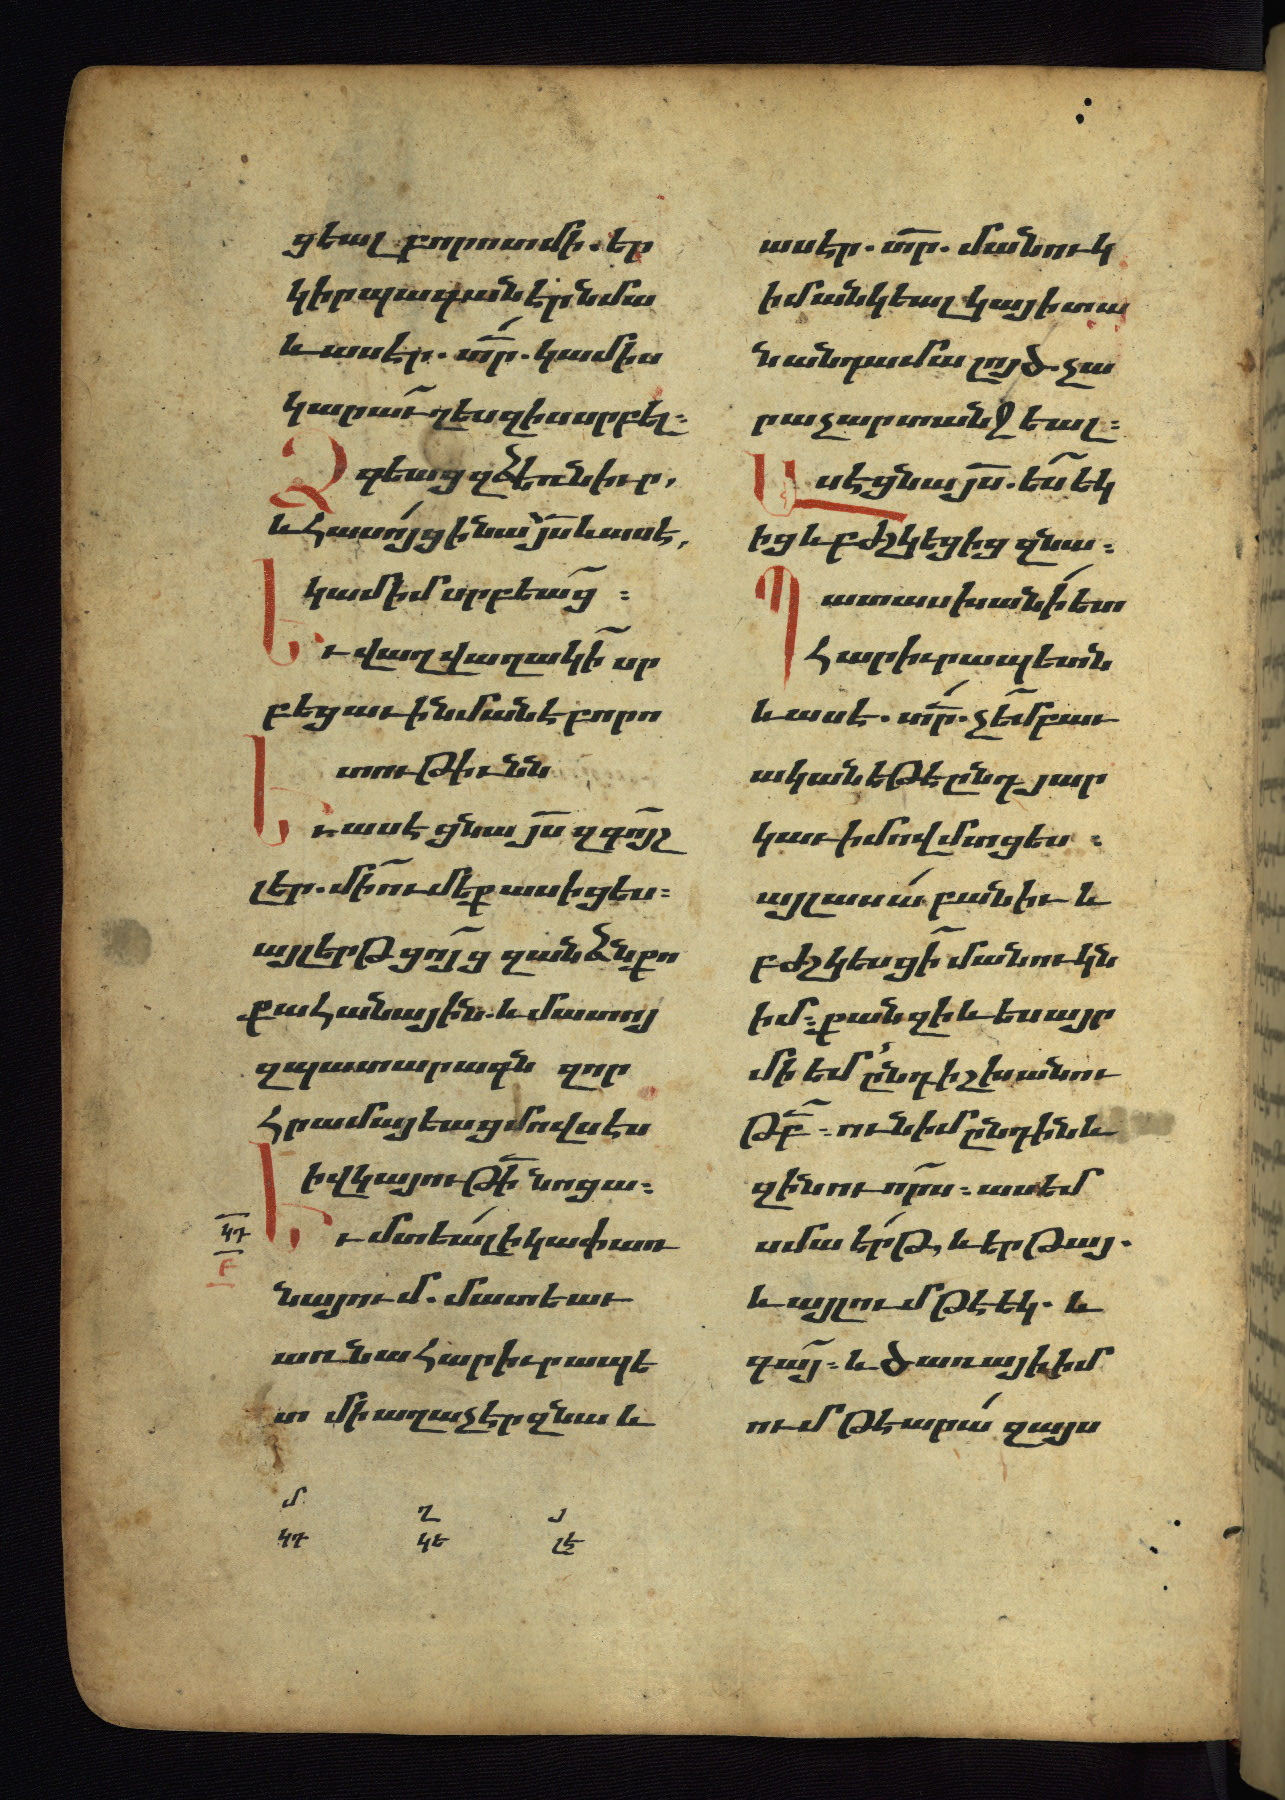 ցեալ բորոտմի. եր
կիր պագանէր նմա
և ասէր. տր. կամիս
կարաւղ ես զիս սրբել։
Ձգեաց զձեռն իւր,
և հասոյց ի նա յս և ասէ,
կամիմ սրբեաց ։
Եւ վաղվաղակի սր
բեցաւ ի նմանէ բորո
տութիւնն
Եւ ասէ ցնա յս զգոյշ
լեր. մի ումեք ասիցես։
այլ երթ ցոյց զանձն քո
քահանային. և մատո
զպատարագն զոր
հրամայեաց մովսէս
ի վկայութի նոցա։
կդ
բ
Եւ մտեալ ի կափառ
նայում. մատեաւ
առ նա հարիւրապե
տ մի աղաչէր զնա և
ասէր. տր. մանուկ
իմ անկեալ կայ ի տա
ն անդամալոյծ. չա
րաչար տանջեալ։
Ասէ ցնա յս. ես եկ
ից և բժշկեցից զնա։
Պատասխանի ետ
հարիւրապետն
և ասէ. տր. չեմ բաւ
ական եթէ ընդ յար
կաւ իմով մտցես ։
այլ ասա բանիւ և
բժշկեսցի մանուկն
իմ։ քանզի և ես այր
մի եմ ընդ իշխանու
թբ ։ ունիմ ընդ ինև
զինուորս ։ ասեմ
սմա երթ, և երթայ.
և այլում թէ եկ. և
գայ ։ և ծառայի իմ
ում թէ արա զայս
մ
կդ
ղ
կե
յ
լէ